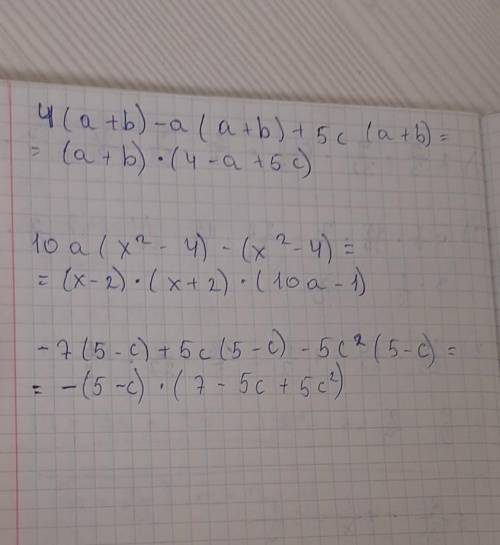 4(a+b)-a(a+b)+5c(a+b)=
=(a+b)·(4-a+5c)
10a(x²-4)-(x²-4)=
=(x-2)·(x+2)·(10a-1)
-7(5-c)+5c(5-c)-5c²(5-c)=
=-(5-c)·(7-5c+5c²)